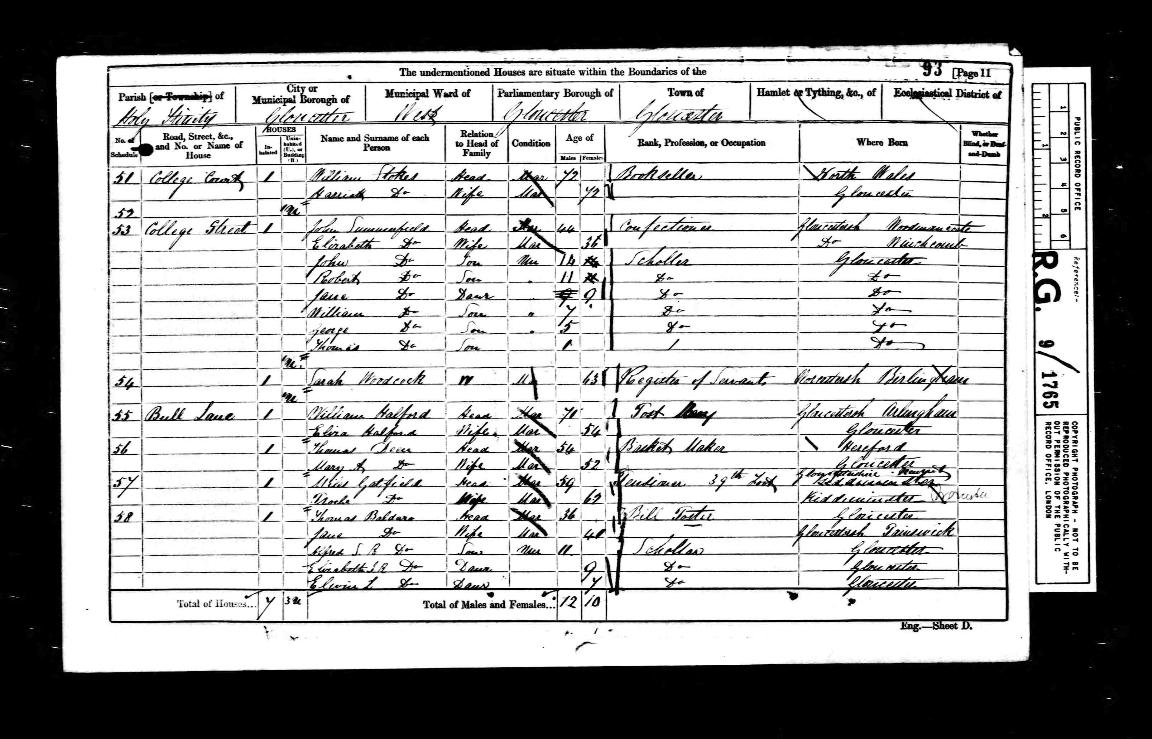 The undermentioned Houses are situate within the Boundaries of the
93 [Page 11
Parish [or Township] of
City or Municipal Borough of
Municipal Ward of
Parliamentary Borough of
Town of
Hamlet or Tything, &c., of
Ecclesiastical District of
Holy Trinity Gloucester West Gloucester Gloucester
No. of Schedule
Road, Street, &c., and No. or Name of House
HOUSES
Inhabited
Uninhabited (U.), or Building (B.)
Name and Surname of each Person
Relation to Head of Family
Condition
Age of
Males Females
Rank, Profession, or Occupation
Where Born
Whether Blind, or Deaf-and-Dumb
51 College Court 1 William Stokes Head Mar 72 Bookseller North Wales
Harriet Do Wife Mar 72 Gloucester
52
53 College Street 1 John Summerfield Head Mar 44 Confectioner Gloucestersh Woodmancote
Elizabeth Do Wife Mar 36 Do Winchcomb
John Do Son Unr 14 Scholler Gloucester
Robert Do Son 11 Do Do
Jane Do Daur 9 Do Do
William Do Son " 7 Do Do
George Do Son 5 Do Do
Thomas Do Son 1 Do
54 1 Sarah Woodcock 63 Register of Servants
55 Bull Lane 1 William Halford Head Mar 71 Gloucestersh Arlingham
Eliza Halford Wife Mar 54 Gloucester
56 1 Thomas Head Mar 54 Basket Maker Hereford
Mary A Do Wife Mar 52 Gloucester
57 1 Gatfield Head Mar 59 Pensioner 39th Foot
Do Wife Mar 62 Kidderminster Worcester
58 1 Thomas Head Mar 36 Bill Poster Gloucester
Jane Do Wife Mar 40 Gloucestersh Painswick
Alfred S R Do Son Unr 11 Scholler Gloucester
Elizabeth Do Daur 9 Do Gloucester
Do Daur 7 Do Gloucester
Total of Houses... 7 3u Total of Males and Females... 12 10
Eng.—Sheet D.
PUBLIC RECORD OFFICE
1 2 3 4 5 6
Reference:-
R.G. 9/1765
COPYRIGHT PHOTOGRAPH - NOT TO BE REPRODUCED PHOTOGRAPHICALLY WITHOUT PERMISSION OF THE PUBLIC RECORD OFFICE, LONDON